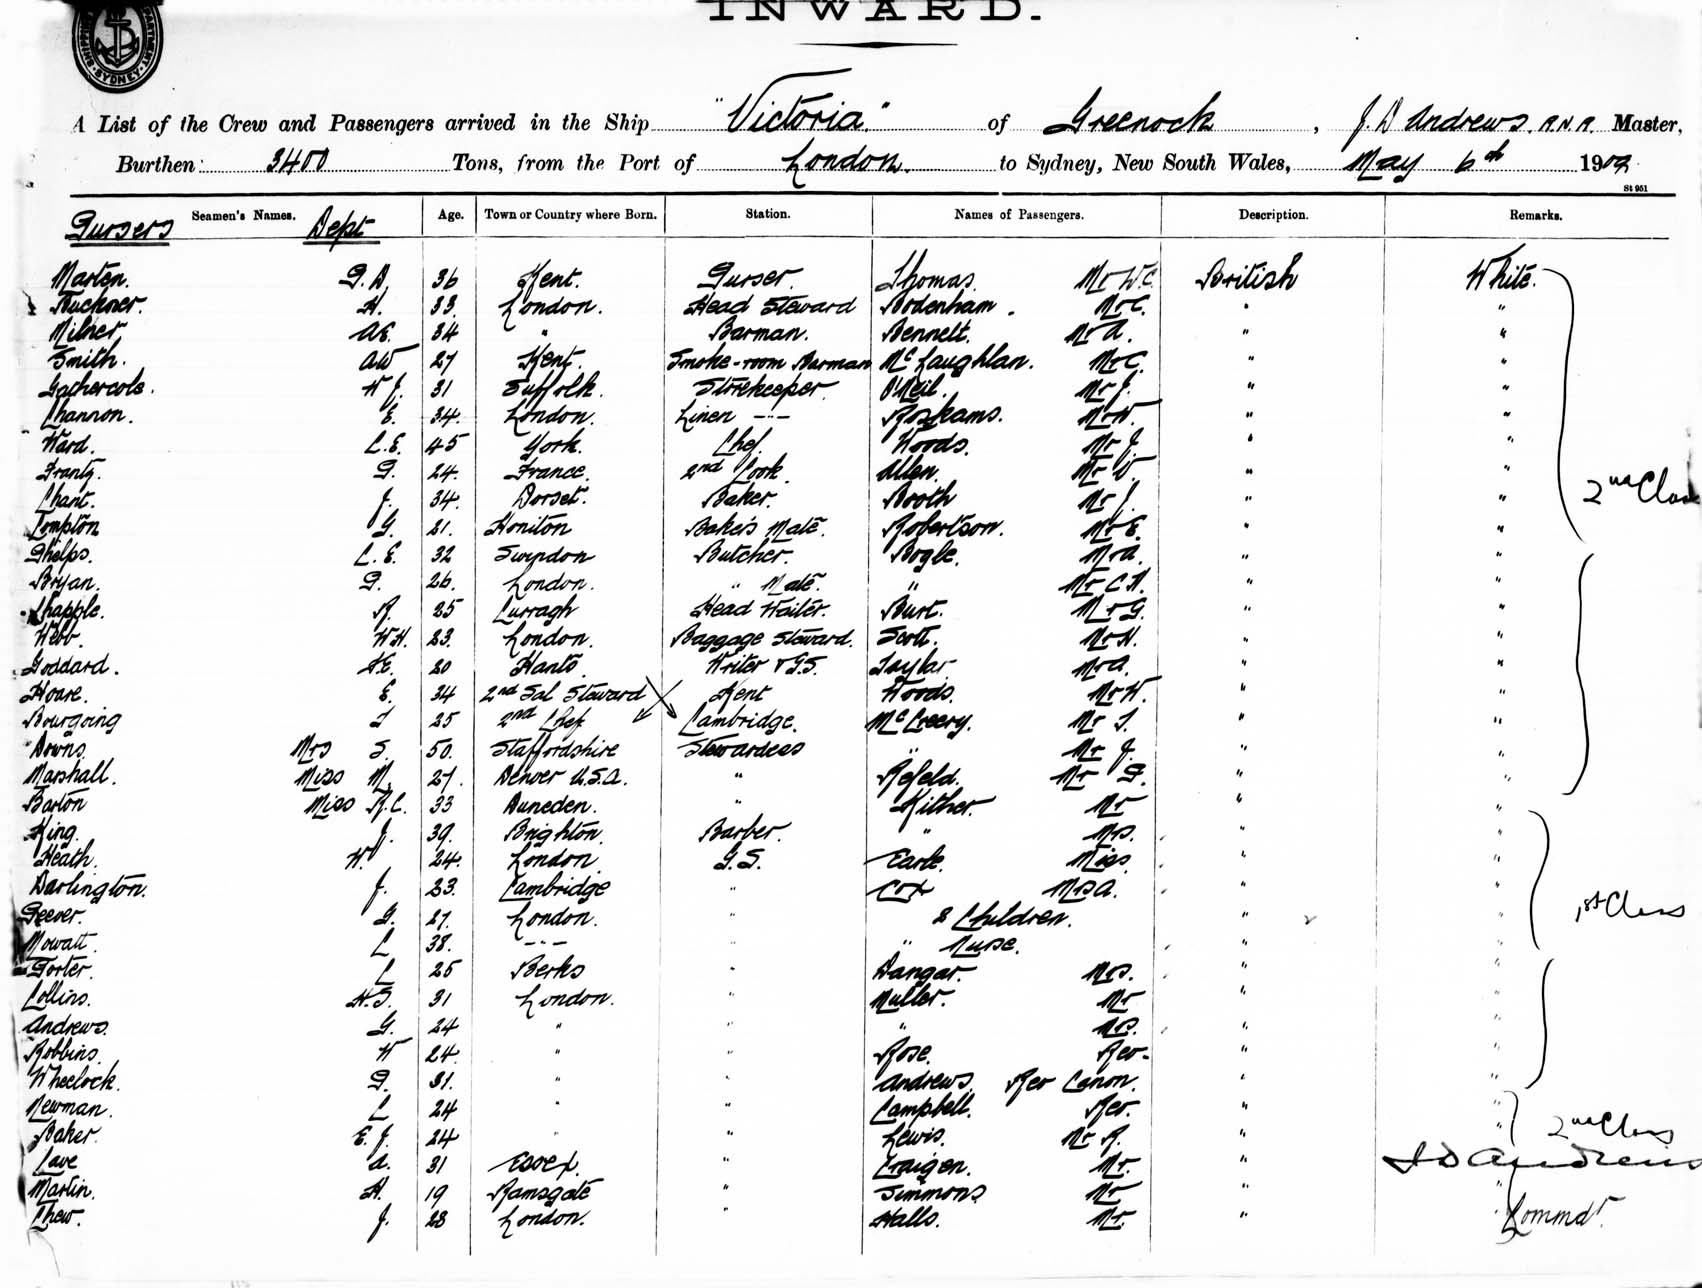 INWARD.
SHIPPING DEPARTMENT SYDNEY
A List of the Crew and Passengers arrived in the Ship "Victoria" of Greenock, J. D Andrews. R.N.R. Master,
Burthen 3400 Tons, from the Port of London. to Sydney, New South Wales, May 6th 1909
St 951
Seamen's Names. Age. Town or Country where Born. Station. Names of Passengers. Description. Remarks.
Pursers Dept
Marten. P.D. 36 Kent. Purser. Thomas. Mr W.C. British White.
Buckner. H. 33. London. Head Steward Bodenham. Mr C. " "
Milner A.E. 34 " Barman. Bennett. Mr A. " "
Smith. AW 27 Kent. Smoke-room Barman McLaughlan. Mr C. " "
Gathercole. W J. 31 Suffolk. Storekeeper O'Neil. Mr J. " "
Channon. E. 34. London. Linen -"- Roskams. Mr W. " "
Ward. C.E. 45 York. Chef. Woods. Mr J. " "
Frantz. P. 24. France. 2nd Cook. Allen. Mr W. " " 2nd Class
Chant. J. 34. Dorset. Baker. Booth Mr J. " "
Compton G. 21. Honiton Baker's Mate. Robertson. Mr E. " "
Phelps. C. E. 32 Swindon Butcher. Bogle. Mr A. " "
Bryan. P. 26. London. " Mate. " Mr C H. " "
Chapple. R. 25 Curragh Head Waiter. Burt. Mr G. " "
Webb. W.H. 23. London. Baggage Steward. Scott. Mr H. " "
Goddard. H.E. 20 Hants Writer & G.S. Taylor Mr A. " "
Hoare. E. 34 2nd Sal Steward Kent Woods. Mr W. " "
Bourgoing I 25 2nd Chef Cambridge. McCreery. Mr I. " "
Downs Mrs S. 50. Staffordshire Stewardess " Mr J. " "
Marshall. Miss M. 27. Denver U.S.A. " Refeld. Mr P. " "
Barton Miss R.C. 33 Duneden. " Kither. Mr " "
King. J. 39. Brighton. Barber. " Mrs. " "
Heath. W. 24. London G.S. Earle. Miss " "
Darlington. J. 23. Cambridge " Cox Mrs A. " "
Peever. G. 27. London. " 2 Children. " " 1st Class
Mowatt. C 38. -"- " " Nurse. " "
Porter. C 25 Berks " Dangar. Mrs. " "
Collins. H.S. 31 London. " Muller. Mr " "
Andrews. G. 24 " " " Mrs. " "
Robbins. W 24. " " Rose. Rev. " "
Wheelock. P. 31. " " Andrews. Rev Canon. " "
Newman. C 24 " " Campbell. Rev. " "
Baker. E. J. 24 " " Lewis. Mr R. " " 2nd Class
Cave A. 31 Essex. " Craigen. Mr. " " J D Andrews
Martin. H. 19 Ramsgate " Simmons Mr " "
Chew. J. 28 London. " Halls. Mr. " " Commdr.